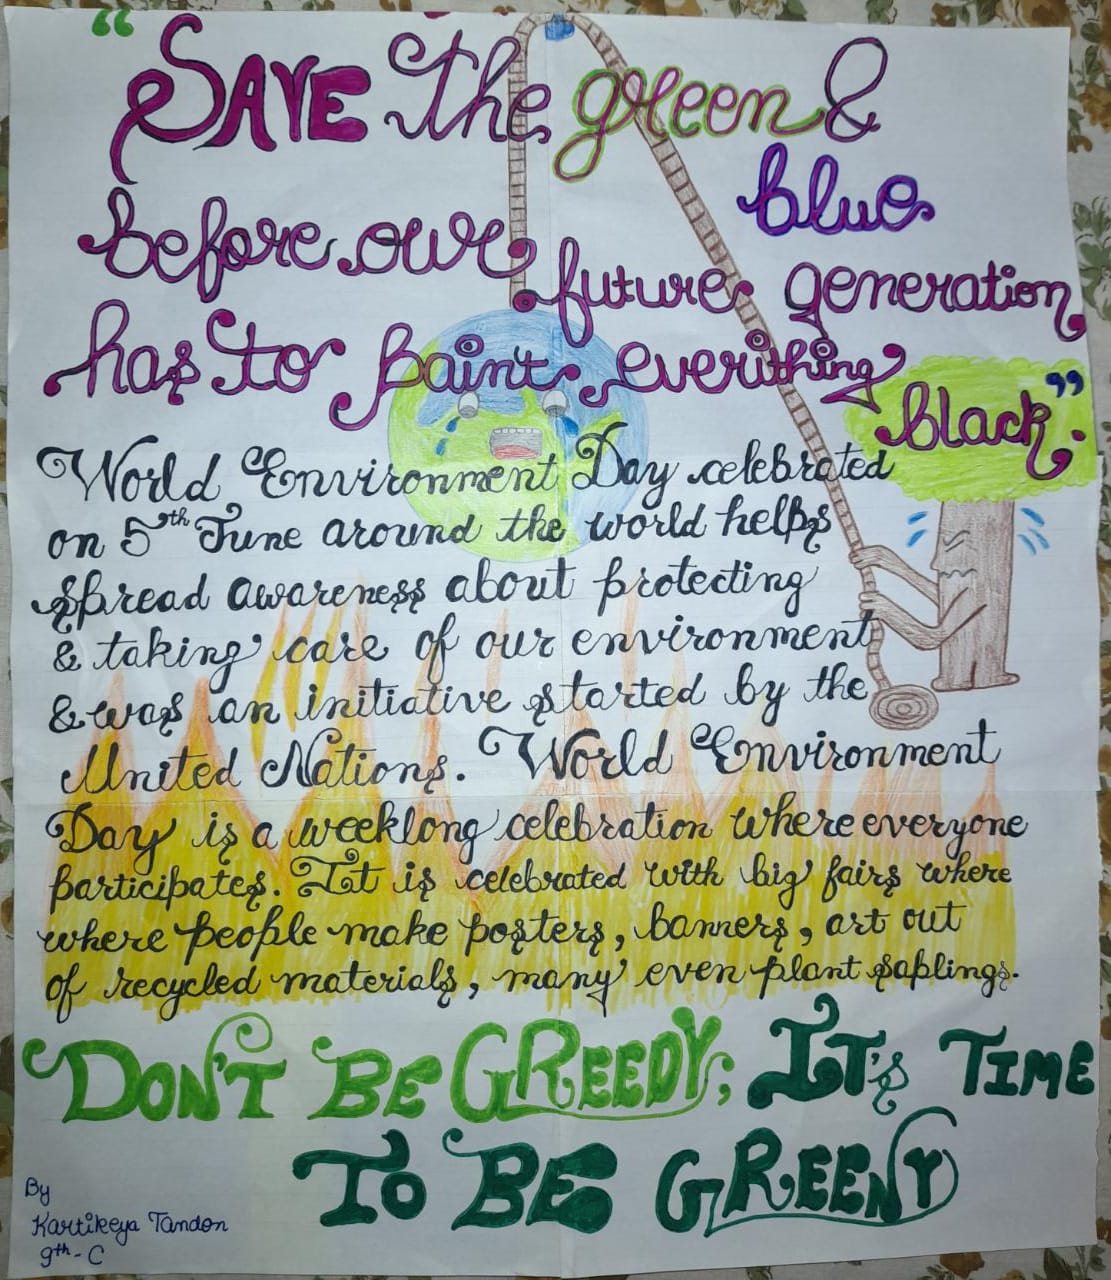 “SAVE the green &
blue
before our future generation
has to paint everithing
black”.
World Environment Day celebrated
on 5th June around the world helps
spread awareness about protecting
& taking care of our environment
& was an initiative started by the
United Nations. World Environment
Day is a weeklong celebration where everyone
participates. It is celebrated with big fairs where
where people make posters, banners, art out
of recycled materials, many even plant saplings.
DON'T BE GREEDY; IT's TIME
TO BE GREENY
By
Kartikeya Tandon
9th-C